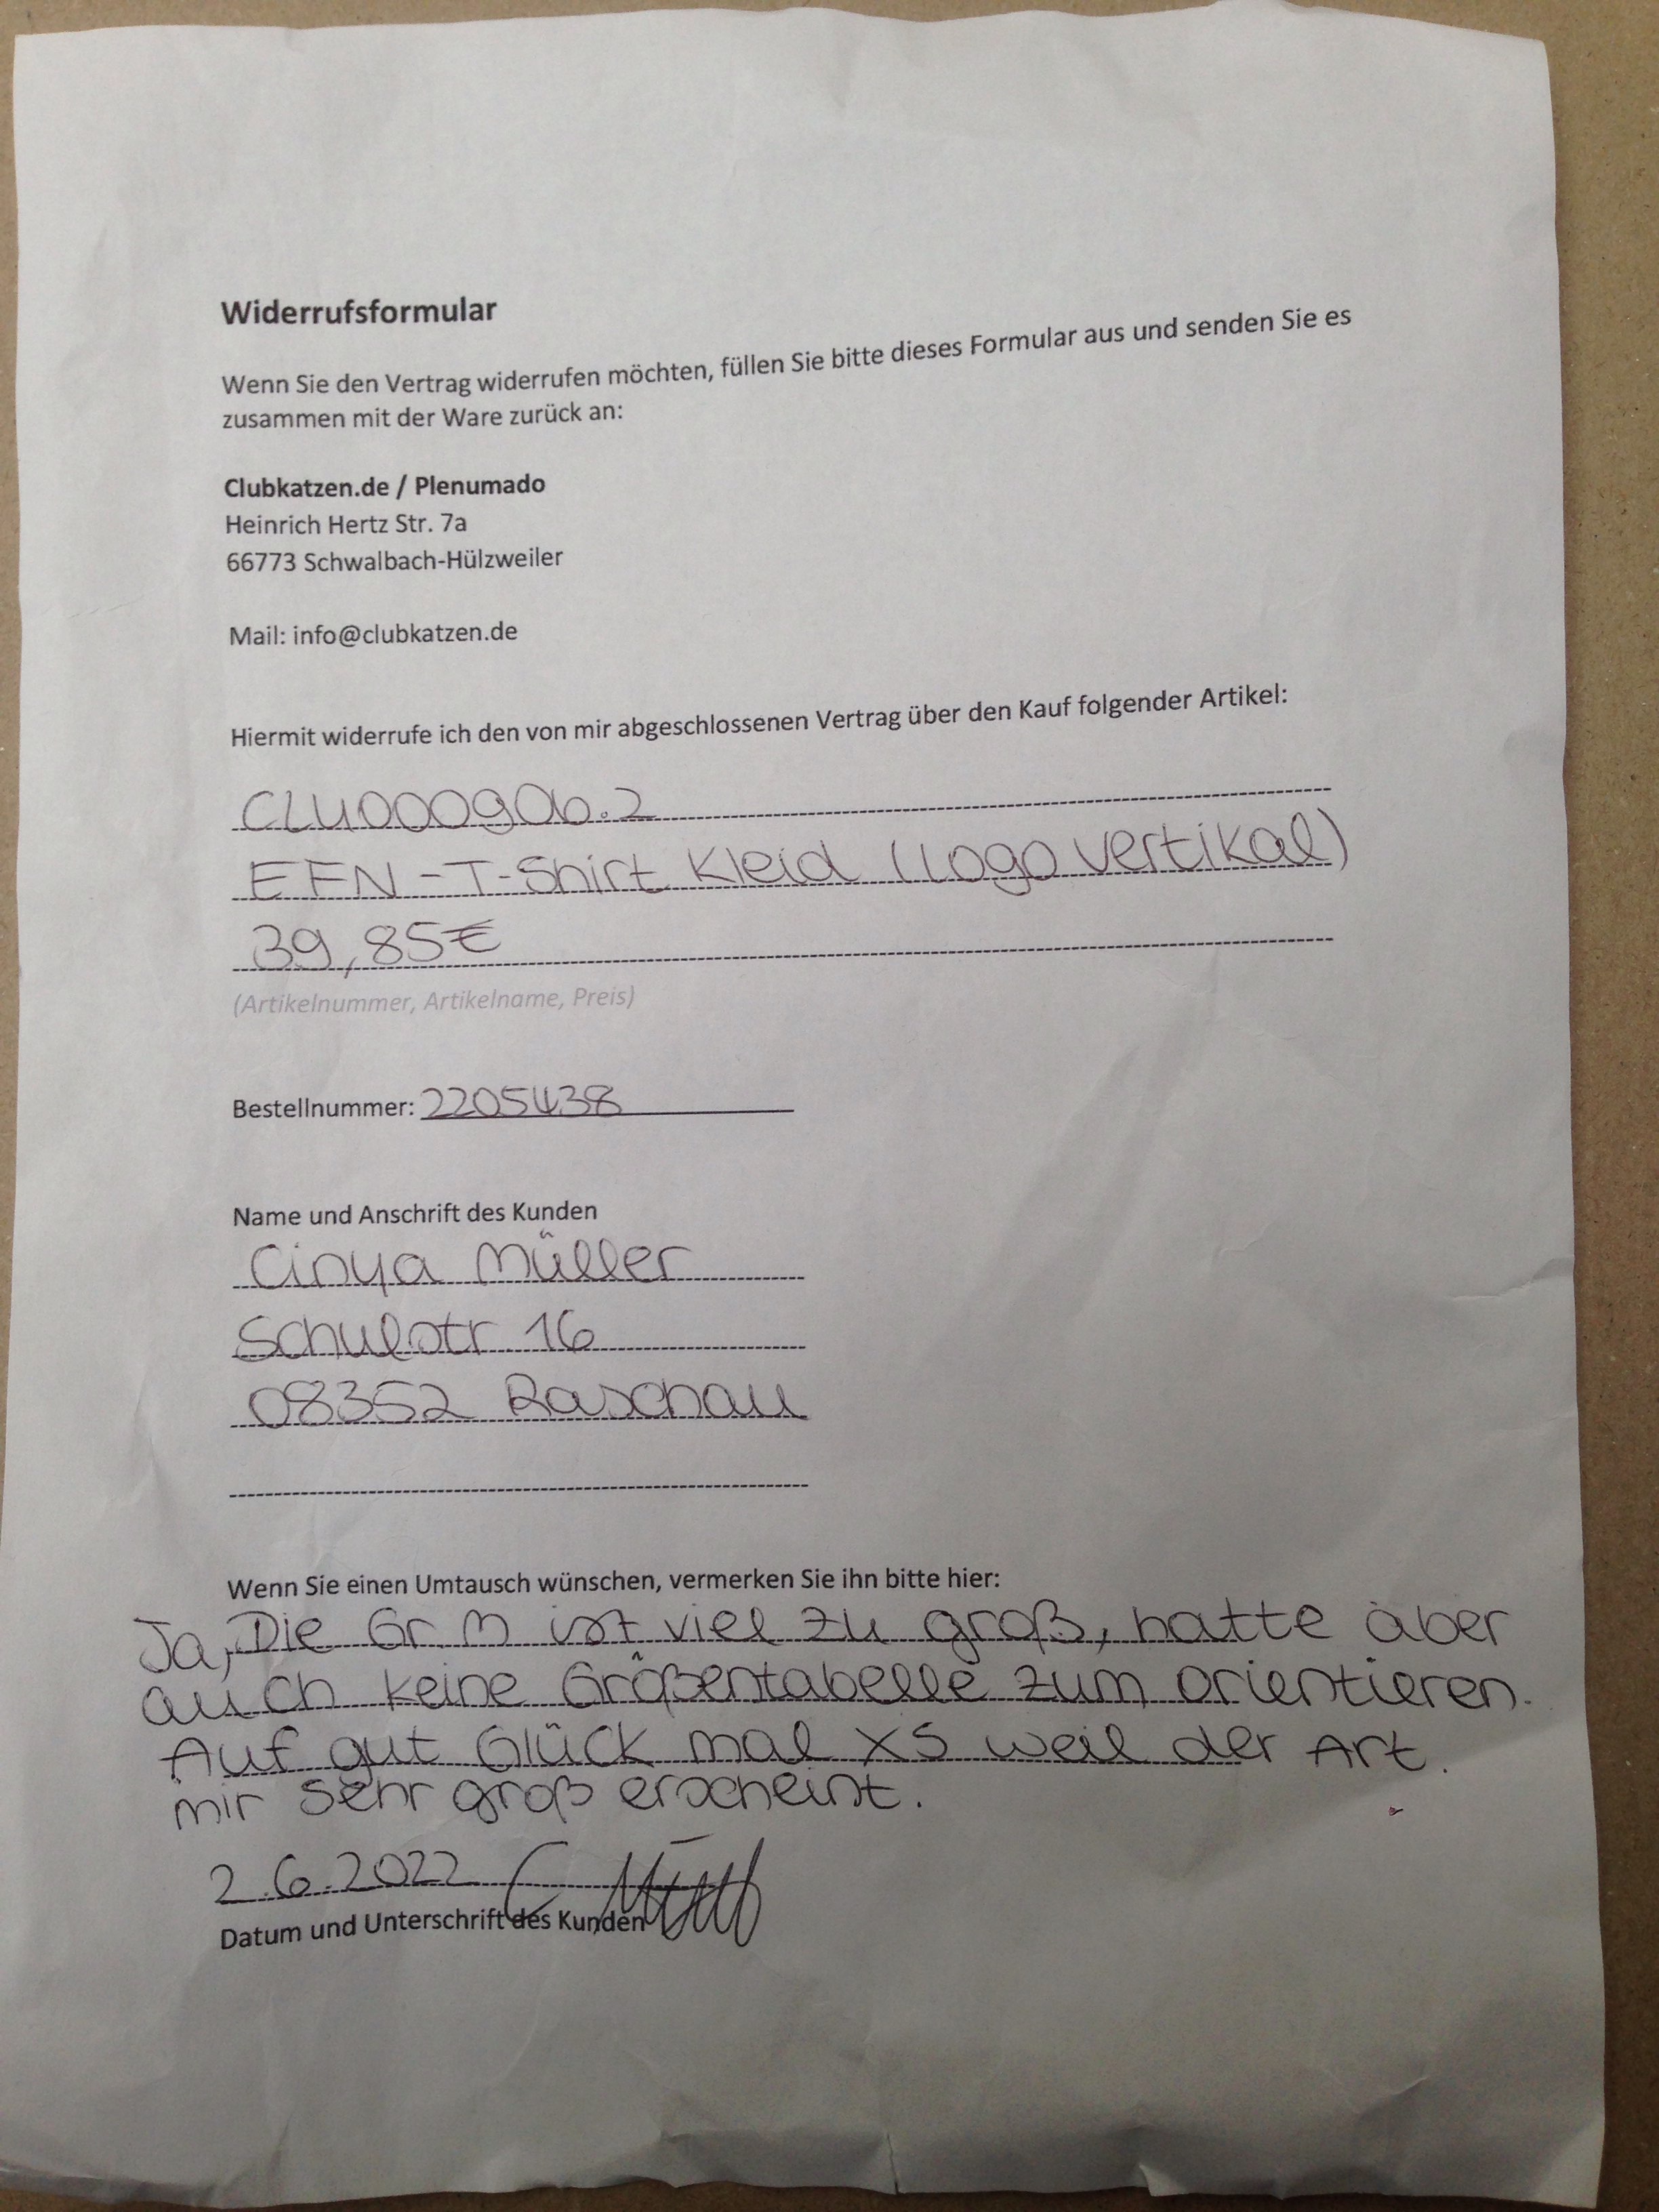 Widerrufsformular
Wenn Sie den Vertrag widerrufen möchten, füllen Sie bitte dieses Formular aus und senden Sie es
zusammen mit der Ware zurück an:
Clubkatzen.de / Plenumado
Heinrich Hertz Str. 7a
66773 Schwalbach-Hülzweiler
Mail: info@clubkatzen.de
Hiermit widerrufe ich den von mir abgeschlossenen Vertrag über den Kauf folgender Artikel:
EFN-T-Shirt Kleid (Logo vertikal)
39,85€
(Artikelnummer, Artikelname, Preis)
Bestellnummer: 2205438
Name und Anschrift des Kunden
Cinya Müller
Schulstr. 16
08352 Raschau
Wenn Sie einen Umtausch wünschen, vermerken Sie ihn bitte hier:
Ja, Die Gr. M ist viel zu groß, hatte aber
auch keine Größentabelle zum orientieren.
Auf gut Glück mal XS weil der Art.
mir sehr groß erscheint.
2.6.2022
Datum und Unterschrift des Kunden